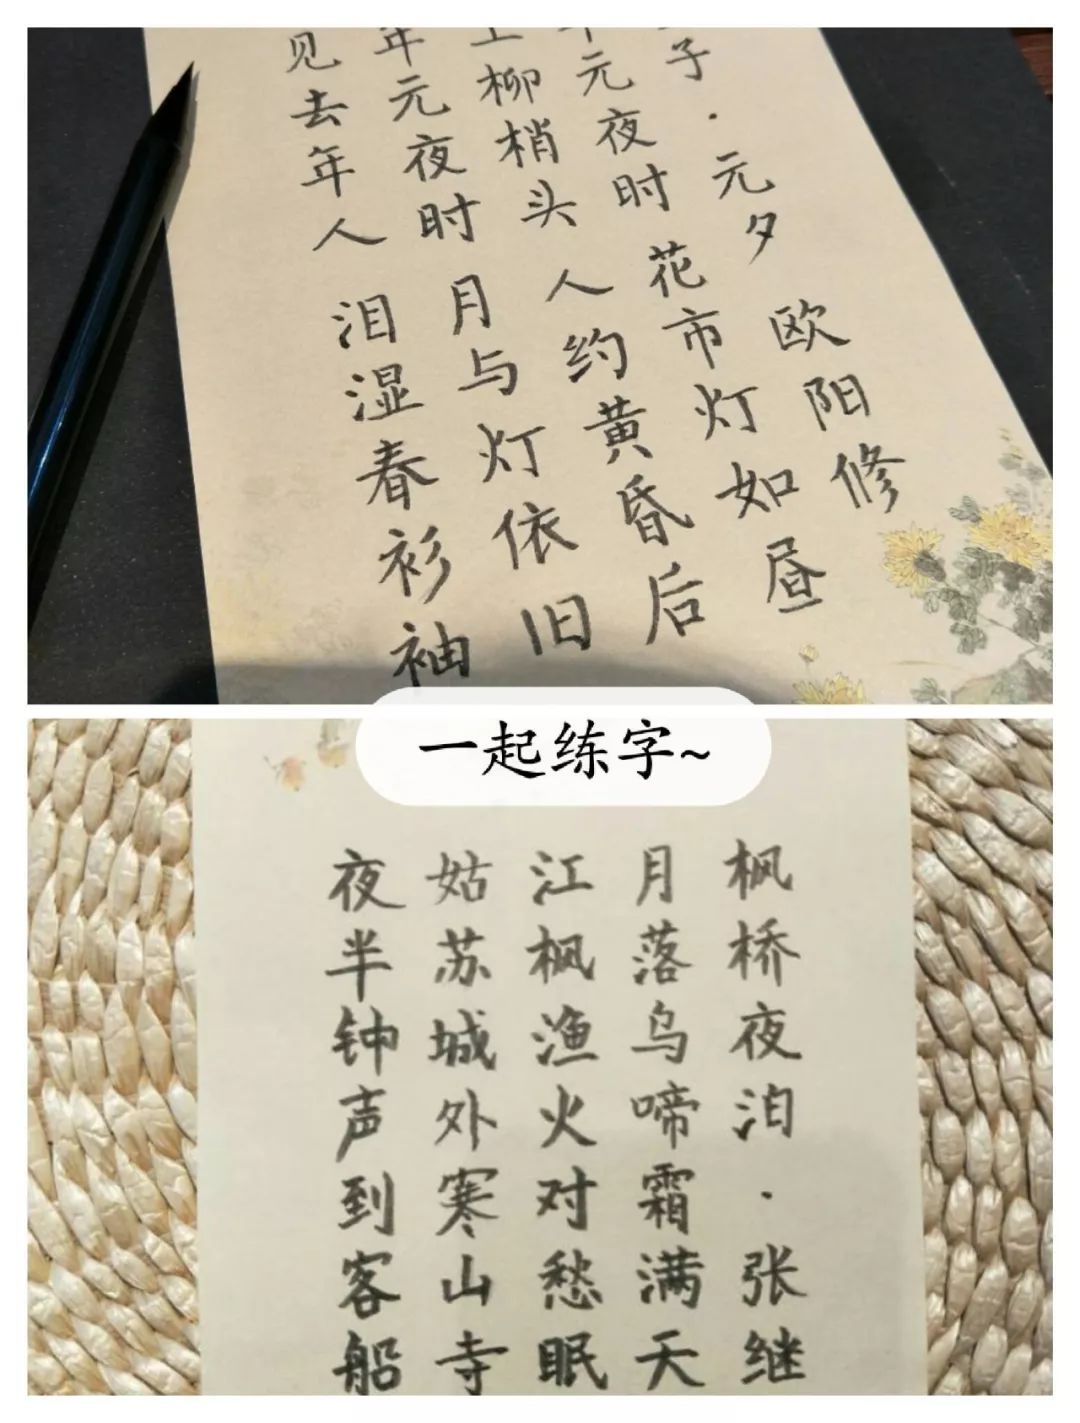 子·元夕 欧阳修
年元夜时 花市灯如昼
上柳梢头 人约黄昏后
年元夜时 月与灯依旧
见去年人 泪湿春衫袖
一起练字~
枫桥夜泊·张继
月落乌啼霜满天
江枫渔火对愁眠
姑苏城外寒山寺
夜半钟声到客船